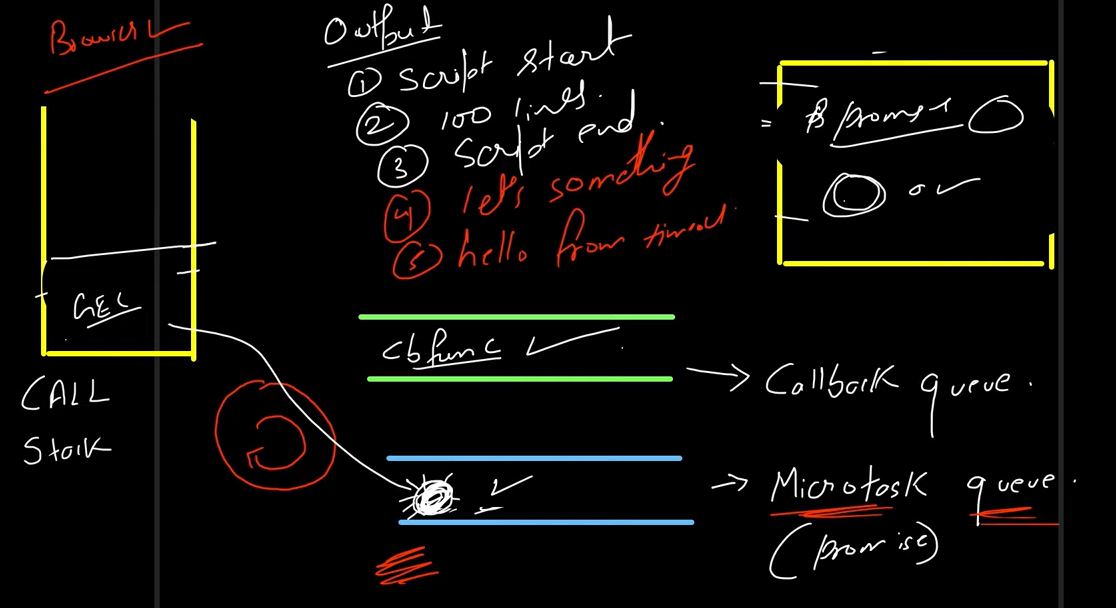 Browser
Output
① Script start
② 100 lines.
③ Script end.
④ let's something
⑤ hello from timeout.
GEC
CALL
Stack
cbfunc
Callback queue.
Microtask queue.
(promise)